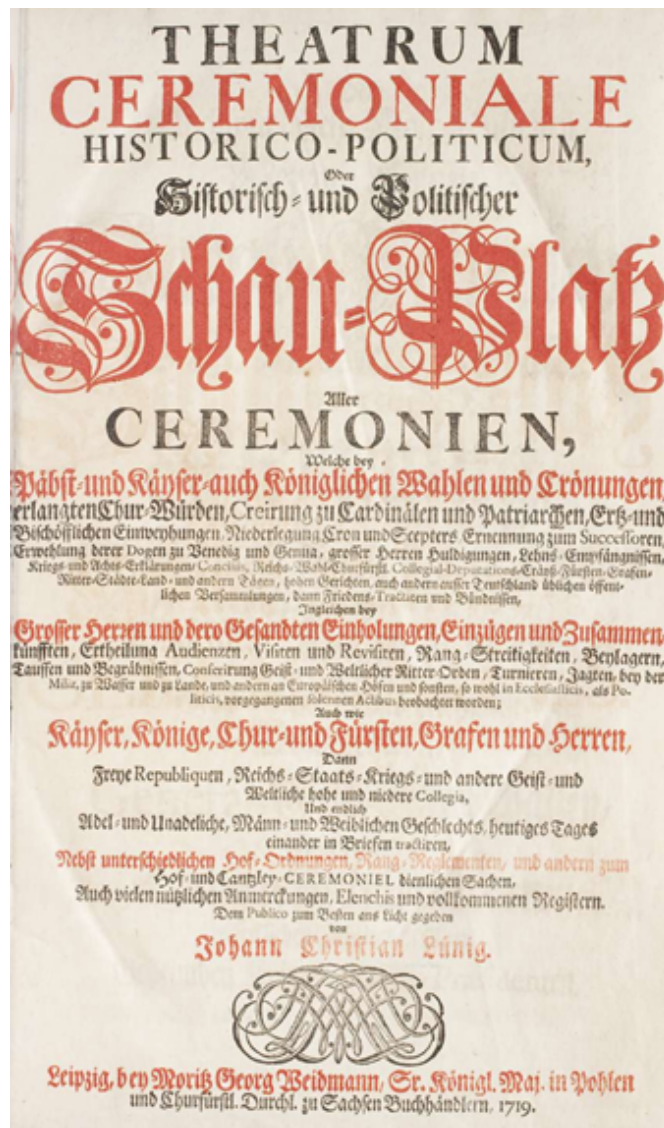 THEATRUM
CEREMONIALE
HISTORICO-POLITICUM,
Oder
Historisch- und Politischer
Schau-Platz
Aller
CEREMONIEN,
Welche bey
Päbst- und Käyser- auch Königlichen Wahlen und Crönungen
erlangten Chur-Würden, Creirung zu Cardinälen und Patriarchen, Ertz- und
Bischöfflichen Einweyhungen, Niederlegung Cron und Scepters Ernennung zum Successoren,
Erwehlung derer Dogen zu Venedig und Genua, grosser Herren Huldigungen, Lehns-Empfängnissen,
Kriegs- und Achts-Erklärungen, Conciliis, Reichs-Wahl-Churfürstl. Collegial-Deputations-Cräyß-Fürsten-Grafen-
Ritter-Städte-Land- und andern Tägen, hohen Gerichten, auch andern ausser Teutschland üblichen öffent-
lichen Versammlungen, dann Friedens-Tractaten und Bündnissen,
Ingleichen bey
Grosser Herren und dero Gesandten Einholungen, Einzügen und Zusammen-
künfften, Ertheilung Audienzen, Visiten und Revisiten, Rang-Streitigkeiten, Beylagern,
Tauffen und Begräbnissen, Conferirung Geist- und Weltlicher Ritter-Orden, Turnieren, Jagten, bey der
Miliz, zu Wasser und zu Lande, und andern an Europäischen Höfen und sonsten, so wohl in Ecclesiasticis, als Po-
liticis, vorgegangenen solennen Actibus beobachtet worden;
Auch wie
Käyser, Könige, Chur- und Fürsten, Grafen und Herren,
Dann
Freye Republiquen, Reichs-Staats-Kriegs- und andere Geist- und
Weltliche hohe und niedere Collegia,
Und endlich
Adel- und Unadeliche, Männ- und Weiblichen Geschlechts, heutiges Tages
einander in Briefen tractiren,
Nebst unterschiedlichen Hof-Ordnungen, Rang-Reglementen, und andern zum
Hof- und Cantzley-CEREMONIEL dienlichen Sachen,
Auch vielen nützlichen Anmerckungen, Elenchis und vollkommenen Registern.
Dem Publico zum Besten ans Licht gegeben
von
Johann Christian Lünig.
Leipzig, bey Moritz Georg Weidmann, Sr. Königl. Maj. in Pohlen
und Churfürstl. Durchl. zu Sachsen Buchhändlern, 1719.